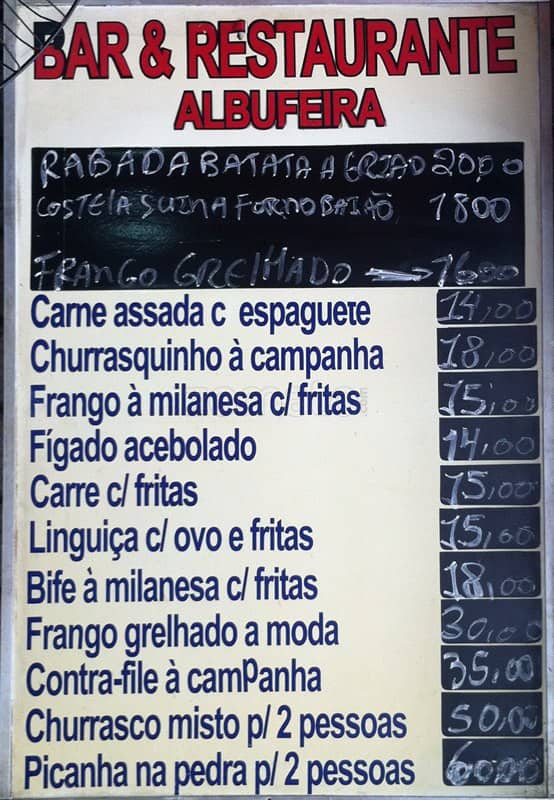 BAR & RESTAURANTE
ALBUFEIRA
RABADA BATATA AGRIAO 20,00
COSTELA SUINA FORNO BAIÃO 1800
FRANGO GRELHADO → 1600
Carne assada c espaguete 14,00
Churrasquinho à campanha 18,00
Frango à milanesa c/ fritas 15,00
Fígado acebolado 14,00
Carre c/ fritas 15,00
Linguiça c/ ovo e fritas 15,00
Bife à milanesa c/ fritas 18,00
Frango grelhado a moda 30,00
Contra-file à campanha 35,00
Churrasco misto p/ 2 pessoas 50,00
Picanha na pedra p/ 2 pessoas 60,00